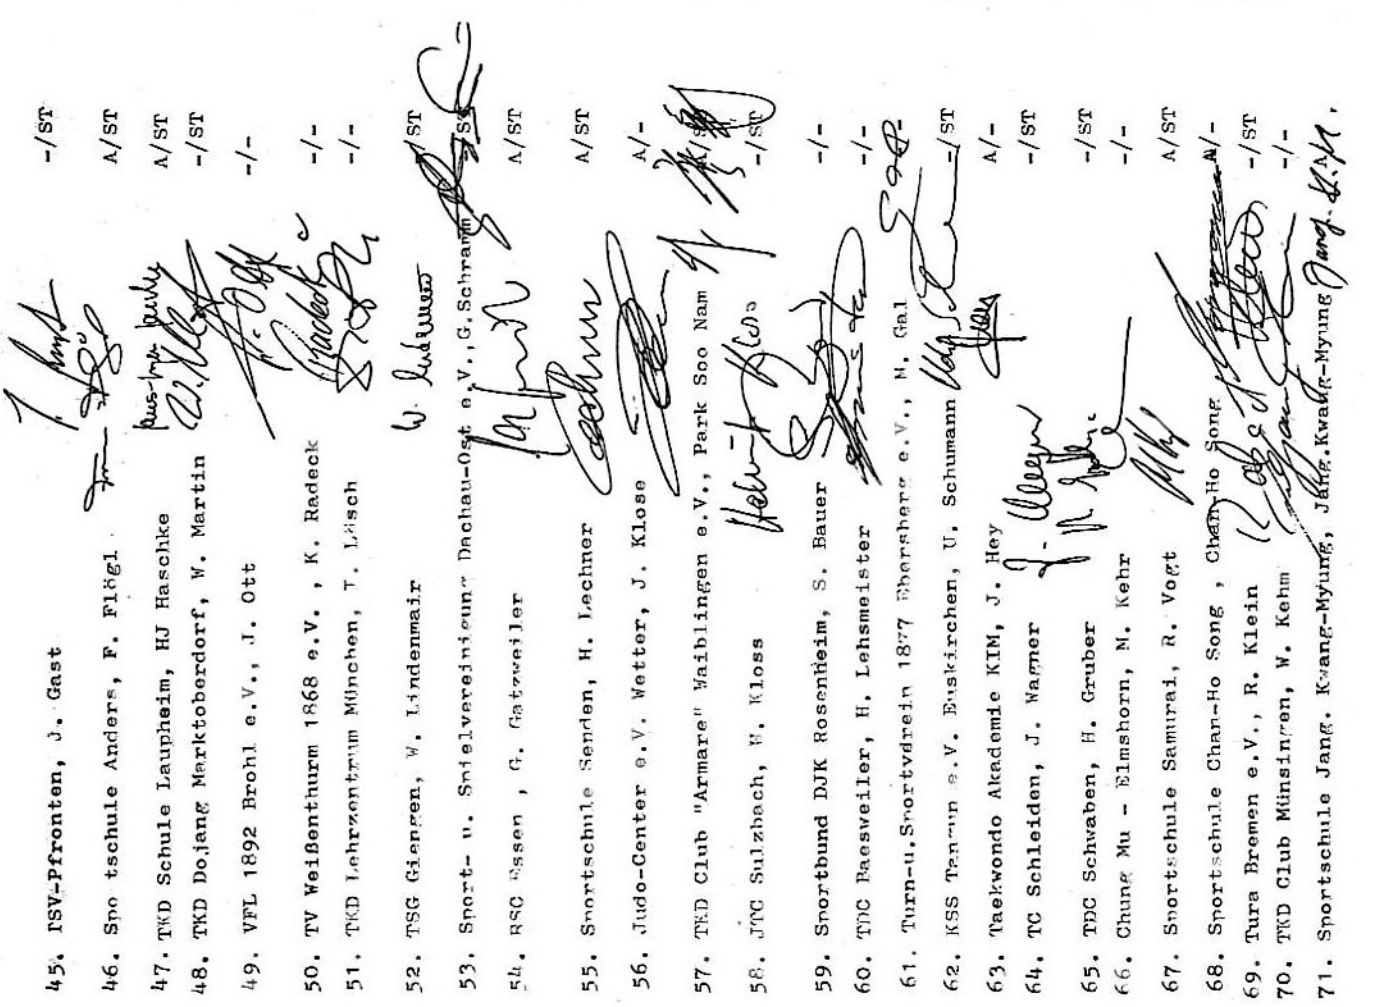 45. PSV-Pfronten, J. Gast -/ST
46. Spo tschule Anders, F. Flögl A/ST
47. TKD Schule Laupheim, HJ Haschke A/ST
48. TKD Dojang Marktoberdorf, W. Martin -/ST
49. VFL 1892 Brohl e.V., J. Ott -/-
50. TV Weißenthurm 1868 e.V. , K. Radeck -/-
51. TKD Lehrzentrum München, T. Lösch -/-
52. TSG Giengen, W. Lindenmair -/ST
53. Sport- u. Spielvereinigung Dachau-Ost e.V.,G.Schramm
54. RSC Essen , G. Gatzweiler A/ST
55. Sportschule Senden, H. Lechner A/ST
56. Judo-Center e.V. Wetter, J. Klose A/-
57. TKD Club "Armare" Waiblingen e.V., Park Soo Nam
58. JTC Sulzbach, H. Kloss -/ST
Helmut Kloss
59. Sportbund DJK Rosenheim, S. Bauer -/-
60. TDC Baesweiler, H. Lehsmeister -/-
61. Turn-u.Sportvdrein 1877 Ebersberg e.V., M. Gal
62. KSS Tangun e.V. Euskirchen, U. Schumann -/ST
63. Taekwondo Akademie KIM, J. Hey A/-
64. TC Schleiden, J. Wagner -/ST
65. TDC Schwaben, H. Gruber -/ST
66. Chung Mu - Elmshorn, M. Kehr -/-
67. Sportschule Samurai, R. Vogt A/ST
68. Sportschule Chan-Ho Song , Chan-Ho Song A/-
69. Tura Bremen e.V., R. Klein -/ST
70. TKD Club Münsingen, W. Kehm -/-
71. Sportschule Jang. Kwang-Myung, Jang.Kwang-Myung Jang. K.M.